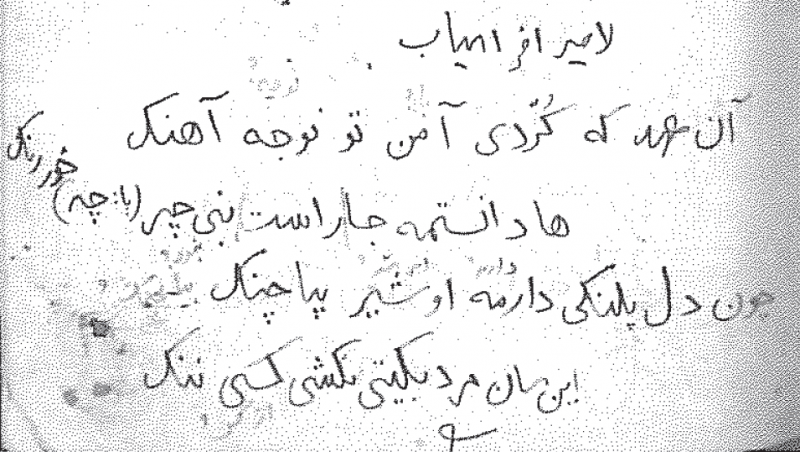 لامیر افراسیاب
آن عهد که کُردی آ من تو نوجه آهنک
ها دانستمه جار است بنی چر (با: چه) خور رنک
چون دل پلنکی دارمه او شیر پیا چنک
این سان مرد بکیتی نکشی کسی ننک